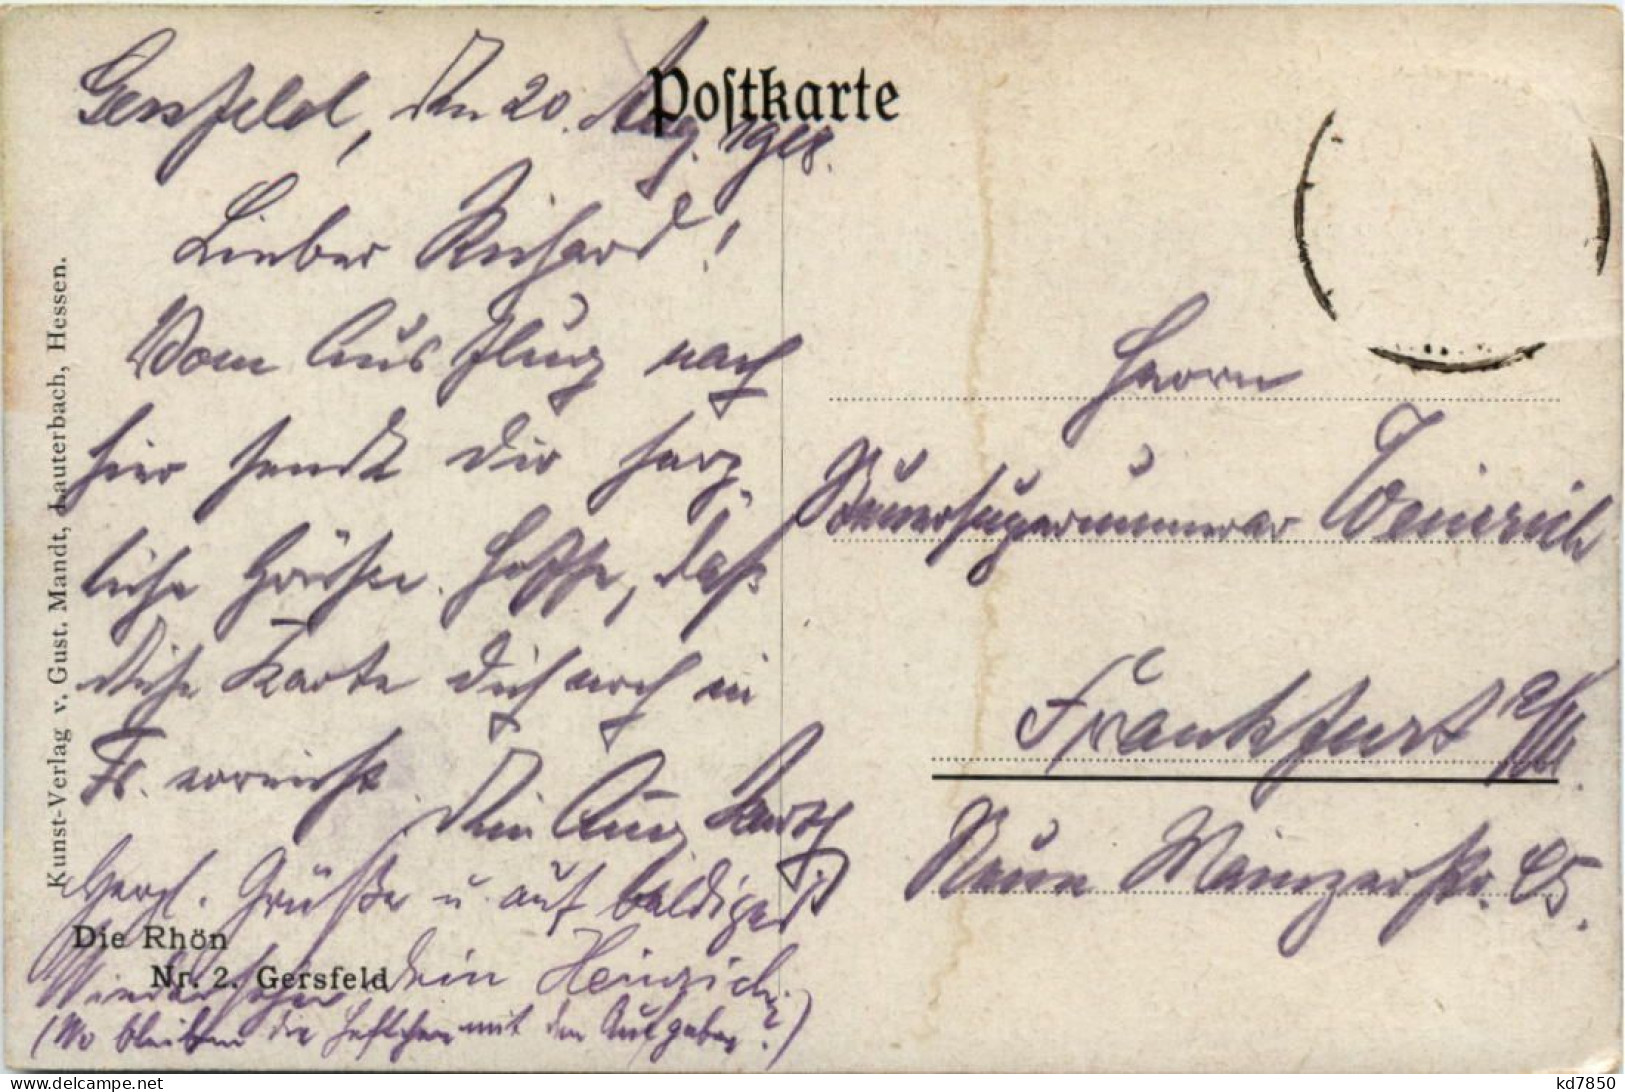 Postkarte
Gersfeld, den 20. Aug. 1918.
Lieber Richard!
Vom Ausflug nach
hier sendet dir herz-
liche Grüsse. Hoffe, daß
diese Karte dich noch in
Fr. erreicht.
Dein Aug
Herzl. Grüße u. auf baldiges
Wiedersehn dein Heinrich.
(Wo bleiben die Heftchen mit den Aufgaben?)
Die Rhön
Nr. 2. Gersfeld
Kunst-Verlag v. Gust. Mandt, Lauterbach, Hessen.
Herrn
Steuersupernumerar Weinrich
Frankfurt a/M.
Neue Mainzerstr.
kd7850